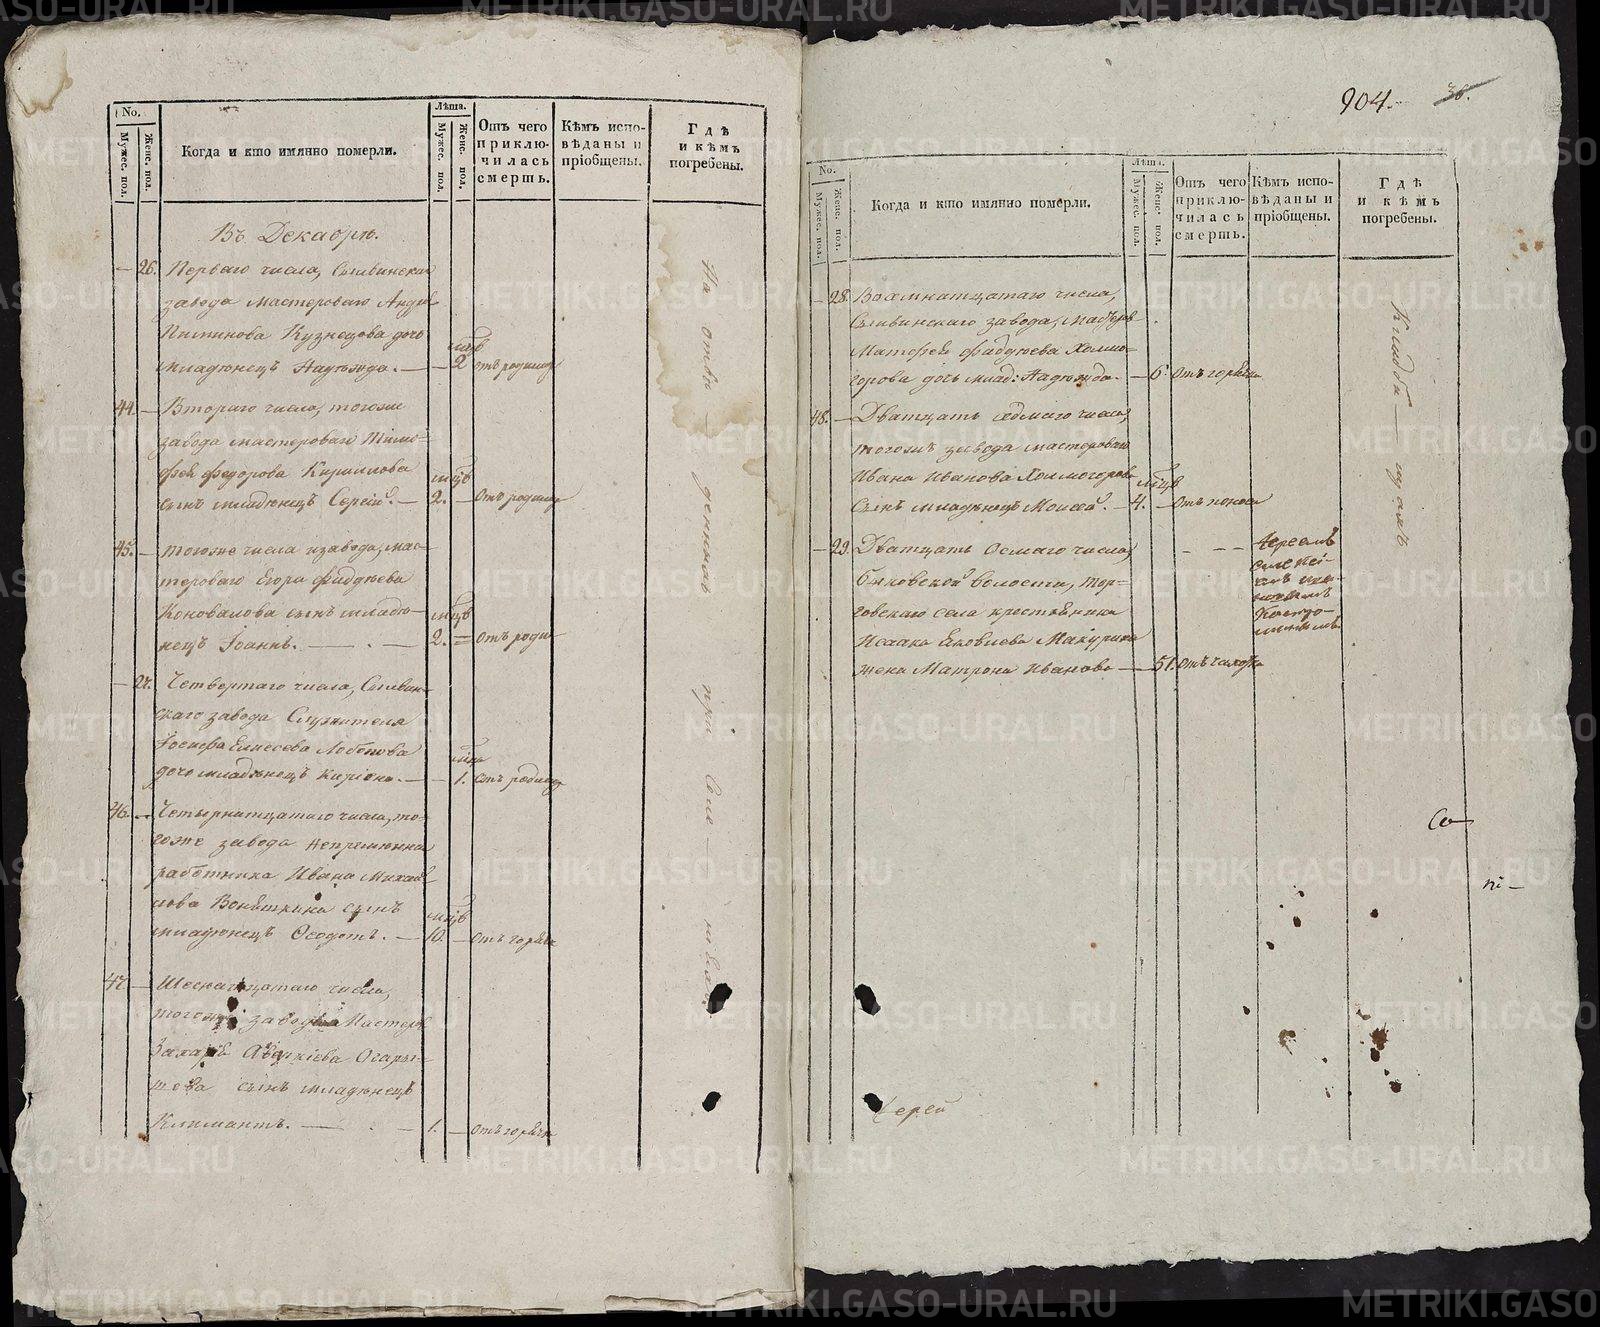 No.
Мужес. пол.
Женс. пол.
Когда и кто имянно померли.
Лѣта.
Мужес. пол.
Женс. пол.
Отъ чего приклю-
чилась
смерть.
Кѣмъ испо-
вѣданы и
пріобщены.
Гдѣ
и кѣмъ
погребены.
Въ Декабрѣ.
26. Перваго числа, Сылвинскаго
завода мастероваго Андрея
Пиминова Кузнецова дочь
младенецъ Надежда. — 2 отъ родимца
44. Втораго числа, тогоже
завода мастероваго Тимо-
фея Федорова Кирилова
сынъ младенецъ Сергій. — 2. отъ родимца
45. тогоже числа изавода, мас-
тероваго Егора Фадѣева
Коновалова сынъ младе-
нецъ Іоаннъ. — 2. отъ родим
27. Четвертаго числа, Сылвин-
скаго завода Служителя
Іосифа Елисеева
дочь младенецъ — 1. отъ родимца
46. Четырнатцатаго числа, то-
гоже завода непремѣннаго
работника Ивана Михай-
лова сынъ
младенецъ Ѳеодотъ. — 10. отъ горячки
47. Шеснатцатаго числа,
тогожъ завода Мастеров
Захара Аверкіева
сынъ младенецъ
Климантъ. — 1. отъ горячки
На отве- денномъ при Селе
904. 36.
No.
Мужес. пол.
Женс. пол.
Когда и кто имянно померли.
Лѣта.
Мужес. пол.
Женс. пол.
Отъ чего
приклю-
чилась
смерть.
Кѣмъ испо-
вѣданы и
пріобщены.
Гдѣ
и кѣмъ
погребены.
28. Восмнатцатаго числа,
Сылвинскаго завода, мастеров
Матфея Фадѣева Холмо-
горова дочь млад: Надежда. — 6. отъ горячки
48. Дватцать седмаго числа,
тогожъ завода мастероваго
Ивана Иванова Холмогорова
сынъ младенецъ Моисей. — 4. отъ поноса
29. Дватцать Осмаго числа,
Быковской волости, Тор-
говскаго села крестьянина
Исаака Яковлева Макурина
жена Матрона Иванова — 51. отъ чахотки
Іереемъ
Кладби-
Со-
пі-
Іерей
METRIKI.GASO-URAL.RU